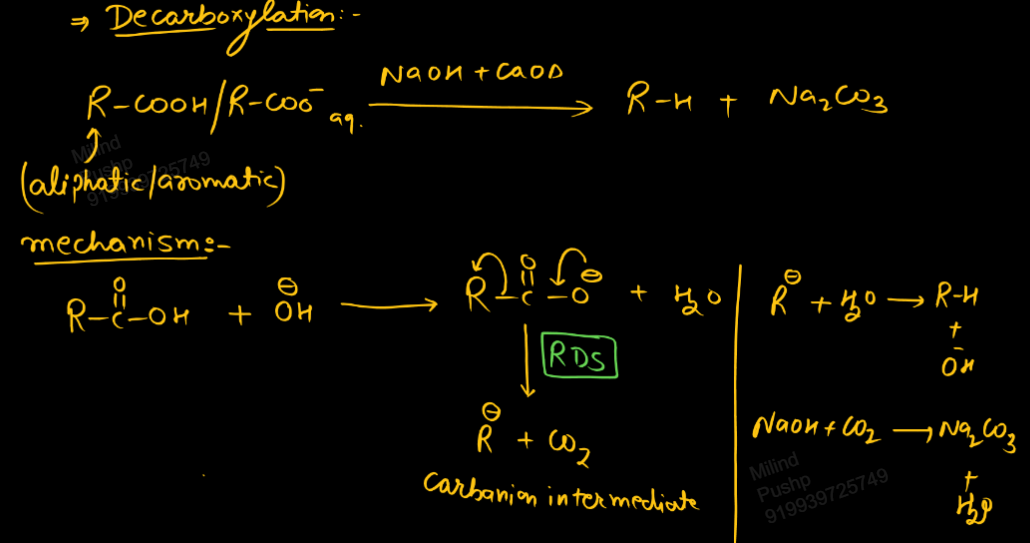 ⇒ Decarboxylation:-
R-COOH/R-COO⁻ aq. NaOH + CaO Δ R-H + Na₂CO₃
(aliphatic/aromatic)
Milind
Pushp
919939725749
mechanism:-
R-C(=O)-OH + ⊖OH → R-C(=O)-O⊖ + H₂O
RDS
R⊖ + CO₂
carbanion intermediate
R⊖ + H₂O → R-H
+
OH⁻
NaOH + CO₂ → Na₂CO₃
+
H₂O
Milind
Pushp
919939725749